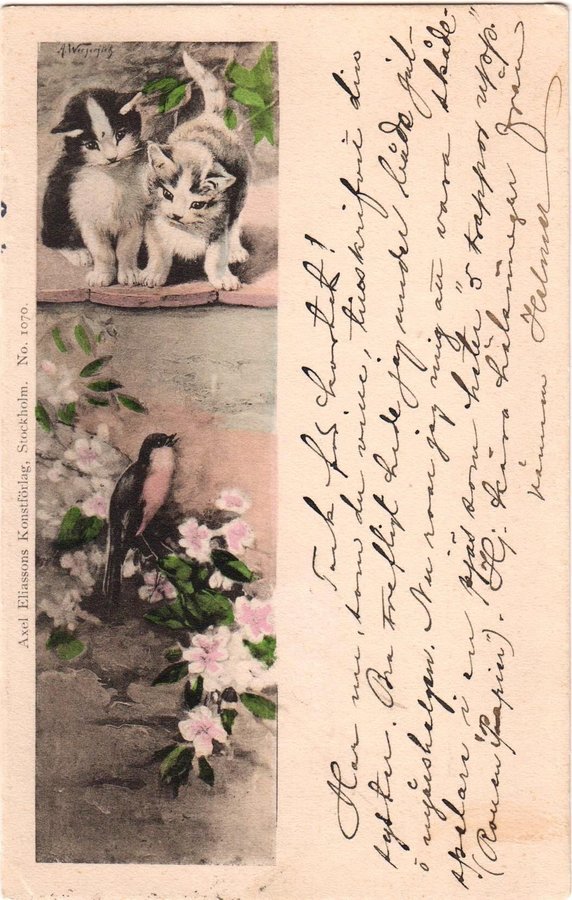 A. Weczerzick
Axel Eliassons Konstförlag, Stockholm. No. 1070.
Tack för kortet!
Har nu, som du vill, tillskrifvit din
syster. Bra trefligt hade jag under både jul-
o nyårshelgen. Nu roar jag mig att vara skåde-
spelare i en pjäs som heter "5 trappor upp."
(Rollen: Papier). Hj. kära hälsningar från
vännen Halmer